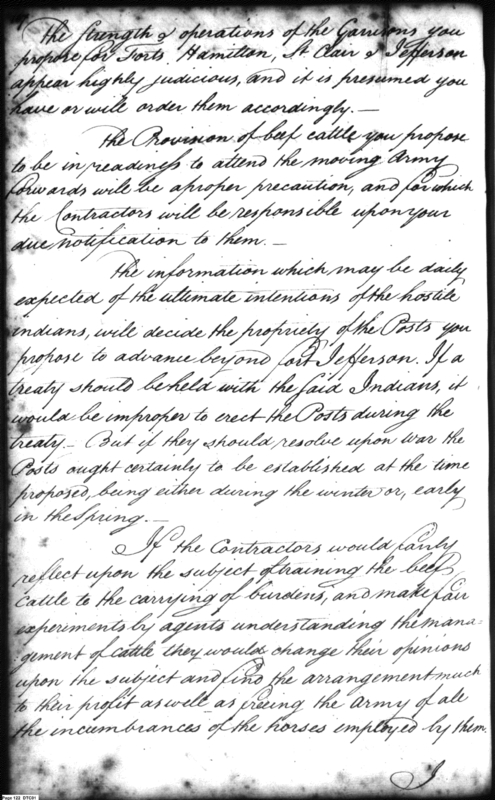 The Strength & operations of the Garrisons you
propose for Forts Hamilton, St Clair & Jefferson
appear highly judicious, and it is presumed you
have or will order them accordingly. —
The Provision of beef cattle you propose
to be in readiness to attend the moving Army
forwards will be a proper precaution, and for which
the Contractors will be responsible upon your
due notification to them. —
The information which may be daily
expected of the ultimate intentions of the hostile
indians, will decide the propriety of the Posts you
propose to advance beyond fort Jefferson. If a
treaty should be held with the said Indians, it
would be improper to erect the Posts during the
treaty — But if they should resolve upon war the
Posts ought certainly to be established at the time
proposed, being either during the winter or, early
in the Spring. —
If the Contractors would fairly
reflect upon the subject of training the beef
cattle to the carrying of burdens, and make fair
experiments by agents understanding the mana-
gement of cattle they would change their opinions
upon the subject and find the arrangement much
to their profit as well as freeing the Army of all
the incumbrances of the horses employed by them.
I
Page 122 DTC01